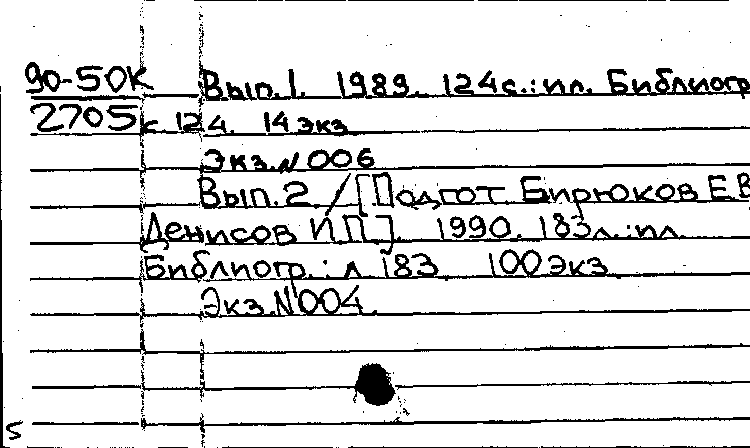 90-50К Вып.1. 1989. 124с.:ил. Библиогр
2705 с. 124. 14 экз
Экз.N 006
Вып.2. / [Подгот. Бирюков Е.В
Денисов И.П.]. 1990. 183л.:ил.
Библиогр.: л 183 100 экз
Экз.N004.
5